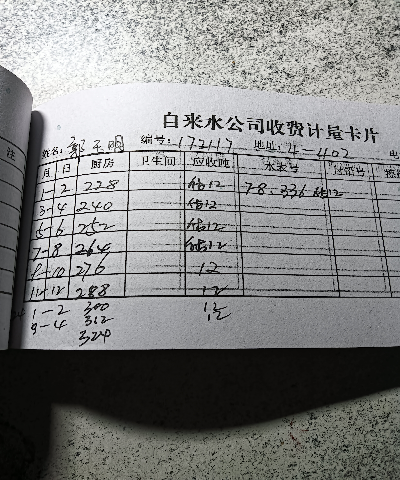 自来水公司收费计量卡片
姓名: 郭天明 编号: 172117 地址: 4-1402 电
注 月 日 厨房 卫生间 应收吨 水表号
1-2 228 估12 78.336 估12
3-4 240 估12
5-6 252 估12
7-8 264 估12
9-10 276 12
11-12 288 12
1-2 300 12
3-4 312 12
324